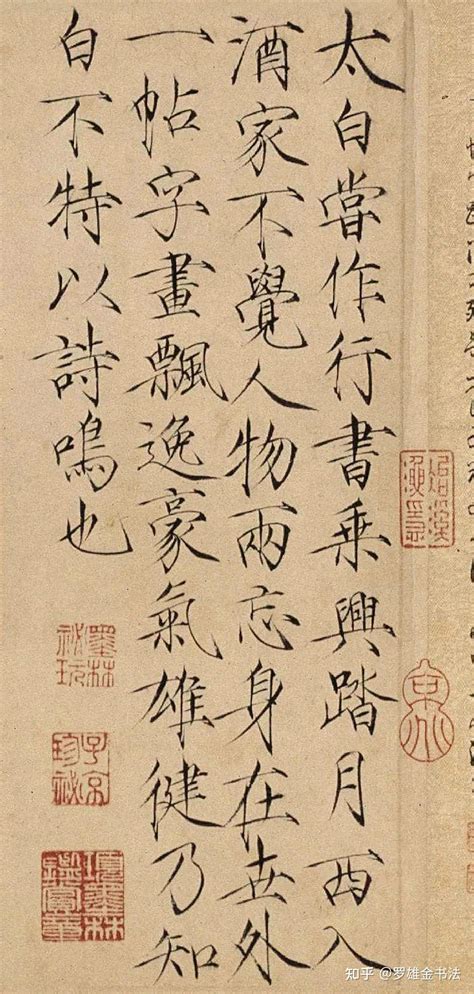 太白嘗作行書乗興踏月西入
酒家不覺人物兩忘身在世外
一帖字畫飄逸豪氣雄健乃知
白不特以詩鳴也
墨林
祕玩
子京
珍祕
項墨林
鑑賞章
知乎 @罗雄金书法